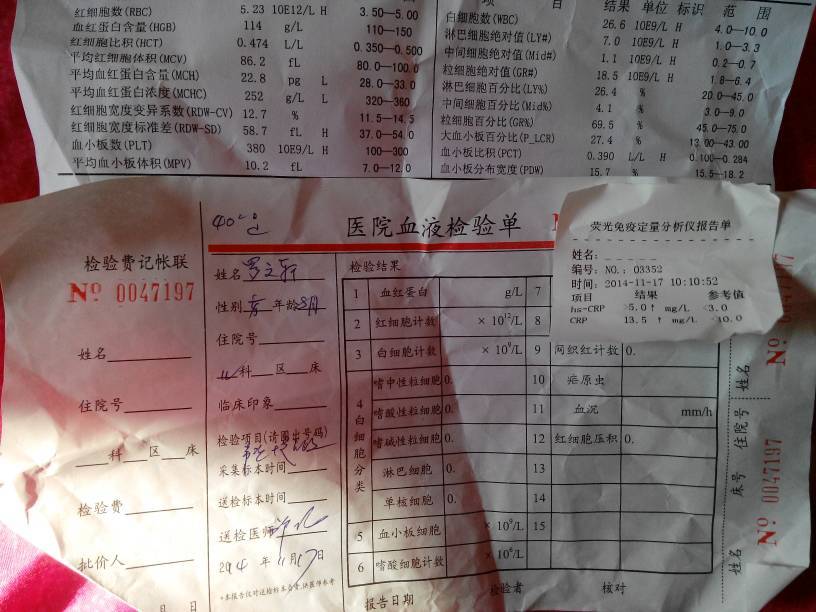 红细胞数(RBC) 5.23 10E12/L H 3.50—5.00
血红蛋白含量(HGB) 114 g/L 110—150
红细胞比积(HCT) 0.474 L/L 0.350—0.500
平均红细胞体积(MCV) 86.2 fL 80.0—100.0
平均血红蛋白含量(MCH) 22.8 pg L 28.0—33.0
平均血红蛋白浓度(MCHC) 252 g/L L 320—360
红细胞宽度变异系数(RDW-CV) 12.7 % 11.5—14.5
红细胞宽度标准差(RDW-SD) 58.7 fL H 37.0—54.0
血小板数(PLT) 380 10E9/L H 100—300
平均血小板体积(MPV) 10.2 fL 7.0—12.0
项 目 结果 单位 标识 范 围
白细胞数(WBC) 26.6 10E9/L H 4.0—10.0
淋巴细胞绝对值(LY#) 7.0 10E9/L H 1.0—3.3
中间细胞绝对值(Mid#) 1.1 10E9/L H 0.2—0.7
粒细胞绝对值(GR#) 18.5 10E9/L H 1.8—6.4
淋巴细胞百分比(LY%) 26.4 % 20.0—45.0
中间细胞百分比(Mid%) 4.1 % 3.0—9.0
粒细胞百分比(GR%) 69.5 % 45.0—75.0
大血小板百分比(P_LCR) 27.4 % 13.00—43.00
血小板比积(PCT) 0.390 L/L H 0.100—0.284
血小板分布宽度(PDW) 15.7 % 15.5—18.2
检验费记帐联
Nº 0047197
姓名
住院号
科 区 床
检验费
批价人
月 日
40℃
医院血液检验单
姓名
性别 年龄 8月
住院号
科 区 床
临床印象
检验项目(请圈出号码)
采集标本时间
送检标本时间
送检医师
2014 年 11月17日
*本报告仅对送检标本负责,供医师参考
检验结果
1 血红蛋白 g/L 7
2 红细胞计数 × 10¹²/L 8
3 白细胞计数 × 10⁹/L 9 网织红计数 0.
4 白细胞分类 嗜中性粒细胞 0. 10 疟原虫
嗜酸性粒细胞 0. 11 血沉 mm/h
嗜碱性粒细胞 0. 12 红细胞压积 0.
淋巴细胞 0. 13
单核细胞 0. 14
5 血小板细胞 × 10⁹/L 15
6 嗜酸细胞计数 × 10⁶/L
报告日期 检验者 核对
荧光免疫定量分析仪报告单
姓名:
编号:NO.: 03352
时间:2014-11-17 10:10:52
项目 结果 参考值
hs-CRP >5.0↑ mg/L <3.0
CRP 13.5↑ mg/L <10.0
Nº 0047197
姓名
住院号
床号
Nº 0047197
姓名